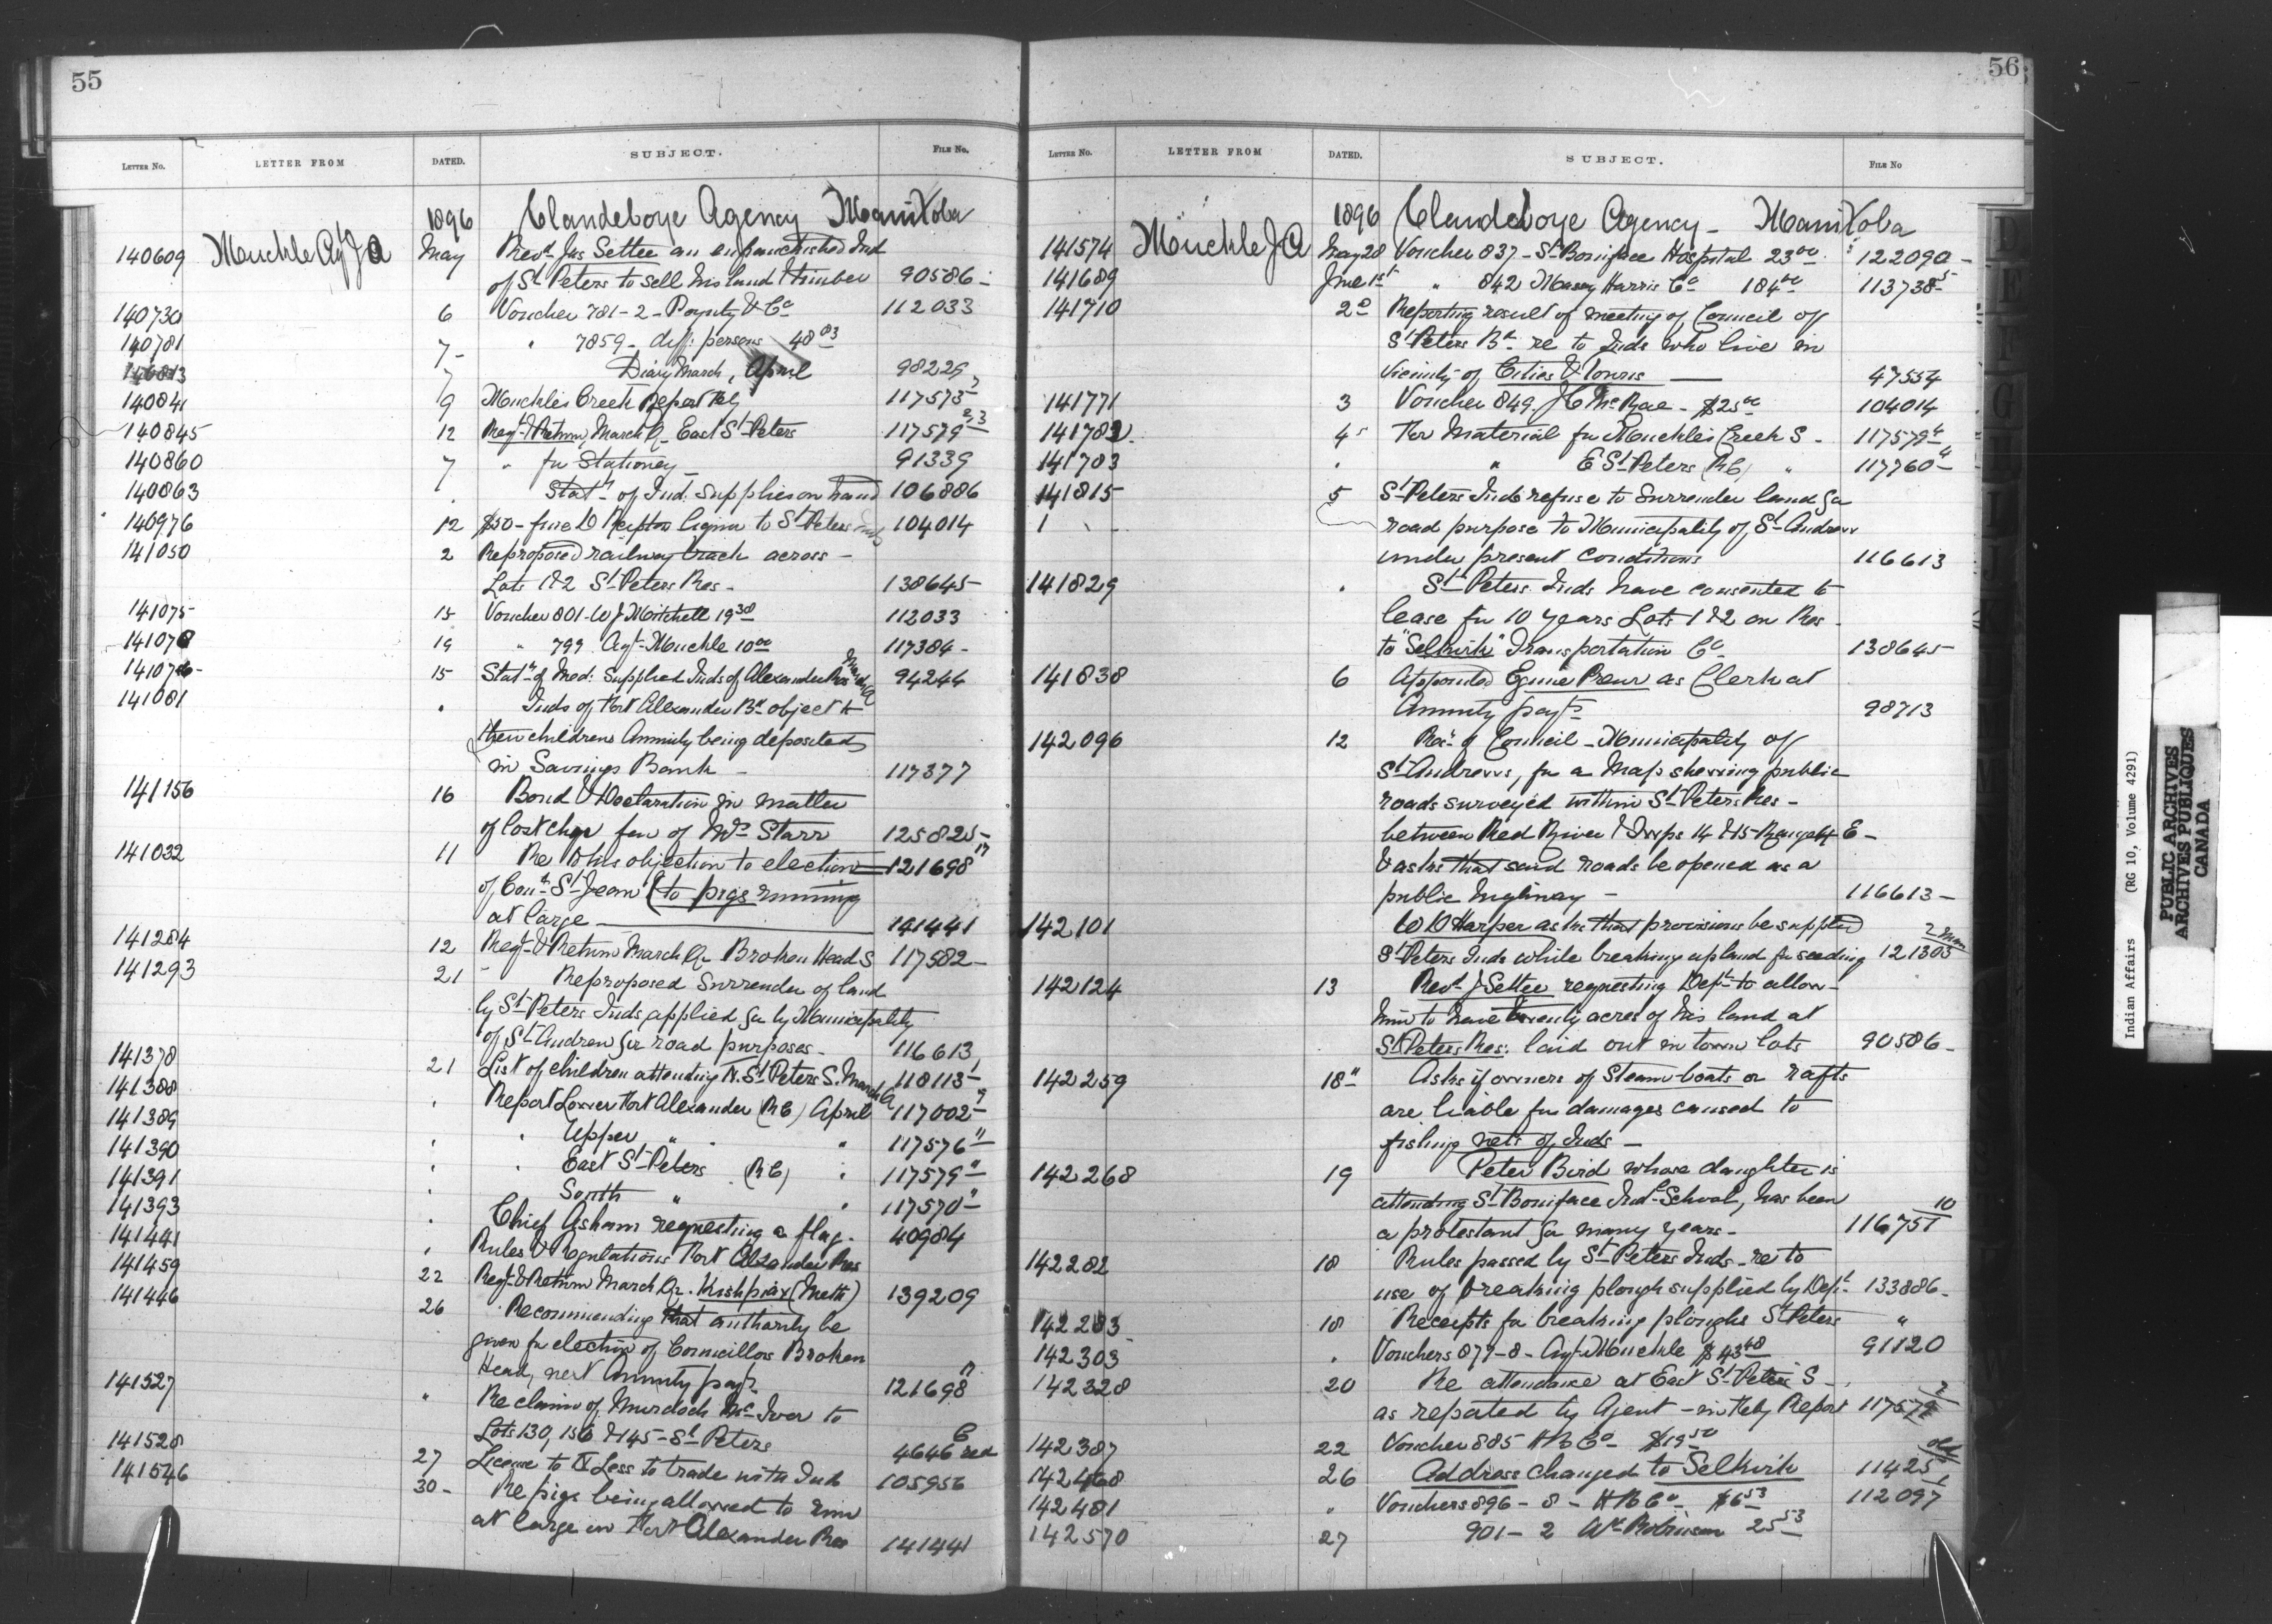 55
LETTER No. LETTER FROM DATED. SUBJECT. FILE No.
1896 Clandeboye Agency Manitoba
140609 Muckle Agt J A May Revd Jas Settee an enfranchised Ind
of St Peters to sell his land & timber 90586
140730 6 Voucher 781-2 - Poyntz & Co 112033
140781 7 - " 7859 - diff: persons 48 03
140813 7 Diary March, April 98229
140841 9 Muckles Creek Report Feby 117573 7
140845 12 Reqt & Return, March Qr East St Peters 117579 2,3
140860 7 " for Stationey 91339
140863 " Statn of Ind. supplies on hand 106886
140976 12 $50 - fine D liquor to St Peters Inds 104014
141050 2 Re proposed railway track across -
Lots 1&2 St Peters Res - 138645
141075 15 Voucher 801 - W J Mitchell 19 38 112033
141078 19 " 799 Agt - Muckle 10 00 117384 -
141076 - 15 Statn of Med: Supplied Inds of Alexander Res March Q 94244
141081 " Inds of Fort Alexander Bd object to
their childrens Annuity being deposited
in Savings Bank - 117377
141156 16 Bond & Declaration in matter
of lost chqe fav of Mr Starr 125825
141032 11 Re D his objection to election 121698 17
of Coun St Jean (to pigs running
at large 141441
141284 12 Reqt & Return March Qr Broken Head S 117582 -
141293 21 - Re proposed Surrender of land
by St Peters Inds, applied for by Municipality
of St Andrew for road purposes - 116613
141378 21 List of children attending N. St Peters S. March Q 118113 1
141388 " Report Lower Fort Alexander (RC) April 117002 9
141389 " " Upper " " " 117576 "
141390 " " East St Peters (RC) " 117579 "
141391 " South " " 117570 "
141393 " Chief Asham requesting a flag. 40984
141441 " Rules & Regulations Fort Alexander Res
141459 22 Reqt & Return March Qr. (Meth) 139209
141446 26 Recommending that authority be
given for election of Councillors Broken
Head, next Annuity payt 121698 17
141527 " Re claim of Murdoch McIver to
Lots 130, 156 & 145 - St Peters 4646 red
141528 27 License to N Less to trade with Inds 105956
141546 30 - Re pigs being allowed to run
at large in Fort Alexander Res 141441
56
LETTER No. LETTER FROM DATED. SUBJECT. FILE No
1896 Clandeboye Agency - Manitoba
141574 Muckle J A May 28 Voucher 837 - St Boniface Hospital 23 00 122090 -
141689 June 1st " 842 Massey Harris Co 184 00 113738 5
141710 2d Reporting result of meeting of Council of
St Peters Bd re to Inds who live in
vicinity of Cities & towns 47554
141771 3 Voucher 849. J C McRae - $25 00 104014
141782 4 For Material for Muckles Creek S - 117579 4
141783 " " E St Peters (RC) " 117760 4
141815 5 St Peters Inds refuse to surrender land for
road purpose to Municipality of St Andrew
under present conditions 116613
141829 " St Peters Inds have consented to
lease for 10 years Lots 1&2 on Res -
to "Selkirk" Transportation Co 138645
141838 6 Appointed as Clerk at
Annuity payts 98713
142096 12 Resn of Council - Municipality of
St Andrews, for a Map shewing public
roads surveyed within St Peters Res -
between Red River & Twps 14 & 15 - Range 4 E -
& asks that said roads be opened as a
public highway - 116613 -
142101 " W D Harper asks that provisions be supplied
St Peters Inds while breaking up land for seeding 121305
142124 13 Revd J Settee requesting Dept to allow -
him to have twenty acres of his land at
St Peters Res: laid out in town lots 90586 -
142259 18" Asks if owners of Steam-boats or rafts
are liable for damages caused to
fishing nets of Inds -
142268 19 Peter Bird whose daughter is
attending St Boniface Indl School, has been
a protestant for many years - 116751 10
142282 18 Rules passed by St Peters Inds - re to
use of breaking plough supplied by Dept 133886 -
142283 18 Receipts for breaking ploughs St Peters "
142303 " Vouchers 877-8 - Agt Muckle $43 48 91120
142328 20 Re attendance at East St Peters S -
as reported by Agent - in Feby Report 117579 2
142387 22 Voucher 885 H B Co - $19 50
142468 26 Address changed to Selkirk 11425
142481 " Vouchers 896 - 8 - H B Co - $6 53 112097
142570 27 901 - 2 Wm Robinson 25 53
D
E
F
G
Indian Affairs (RG 10, Volume 4291)
PUBLIC ARCHIVES
ARCHIVES PUBLIQUES
CANADA